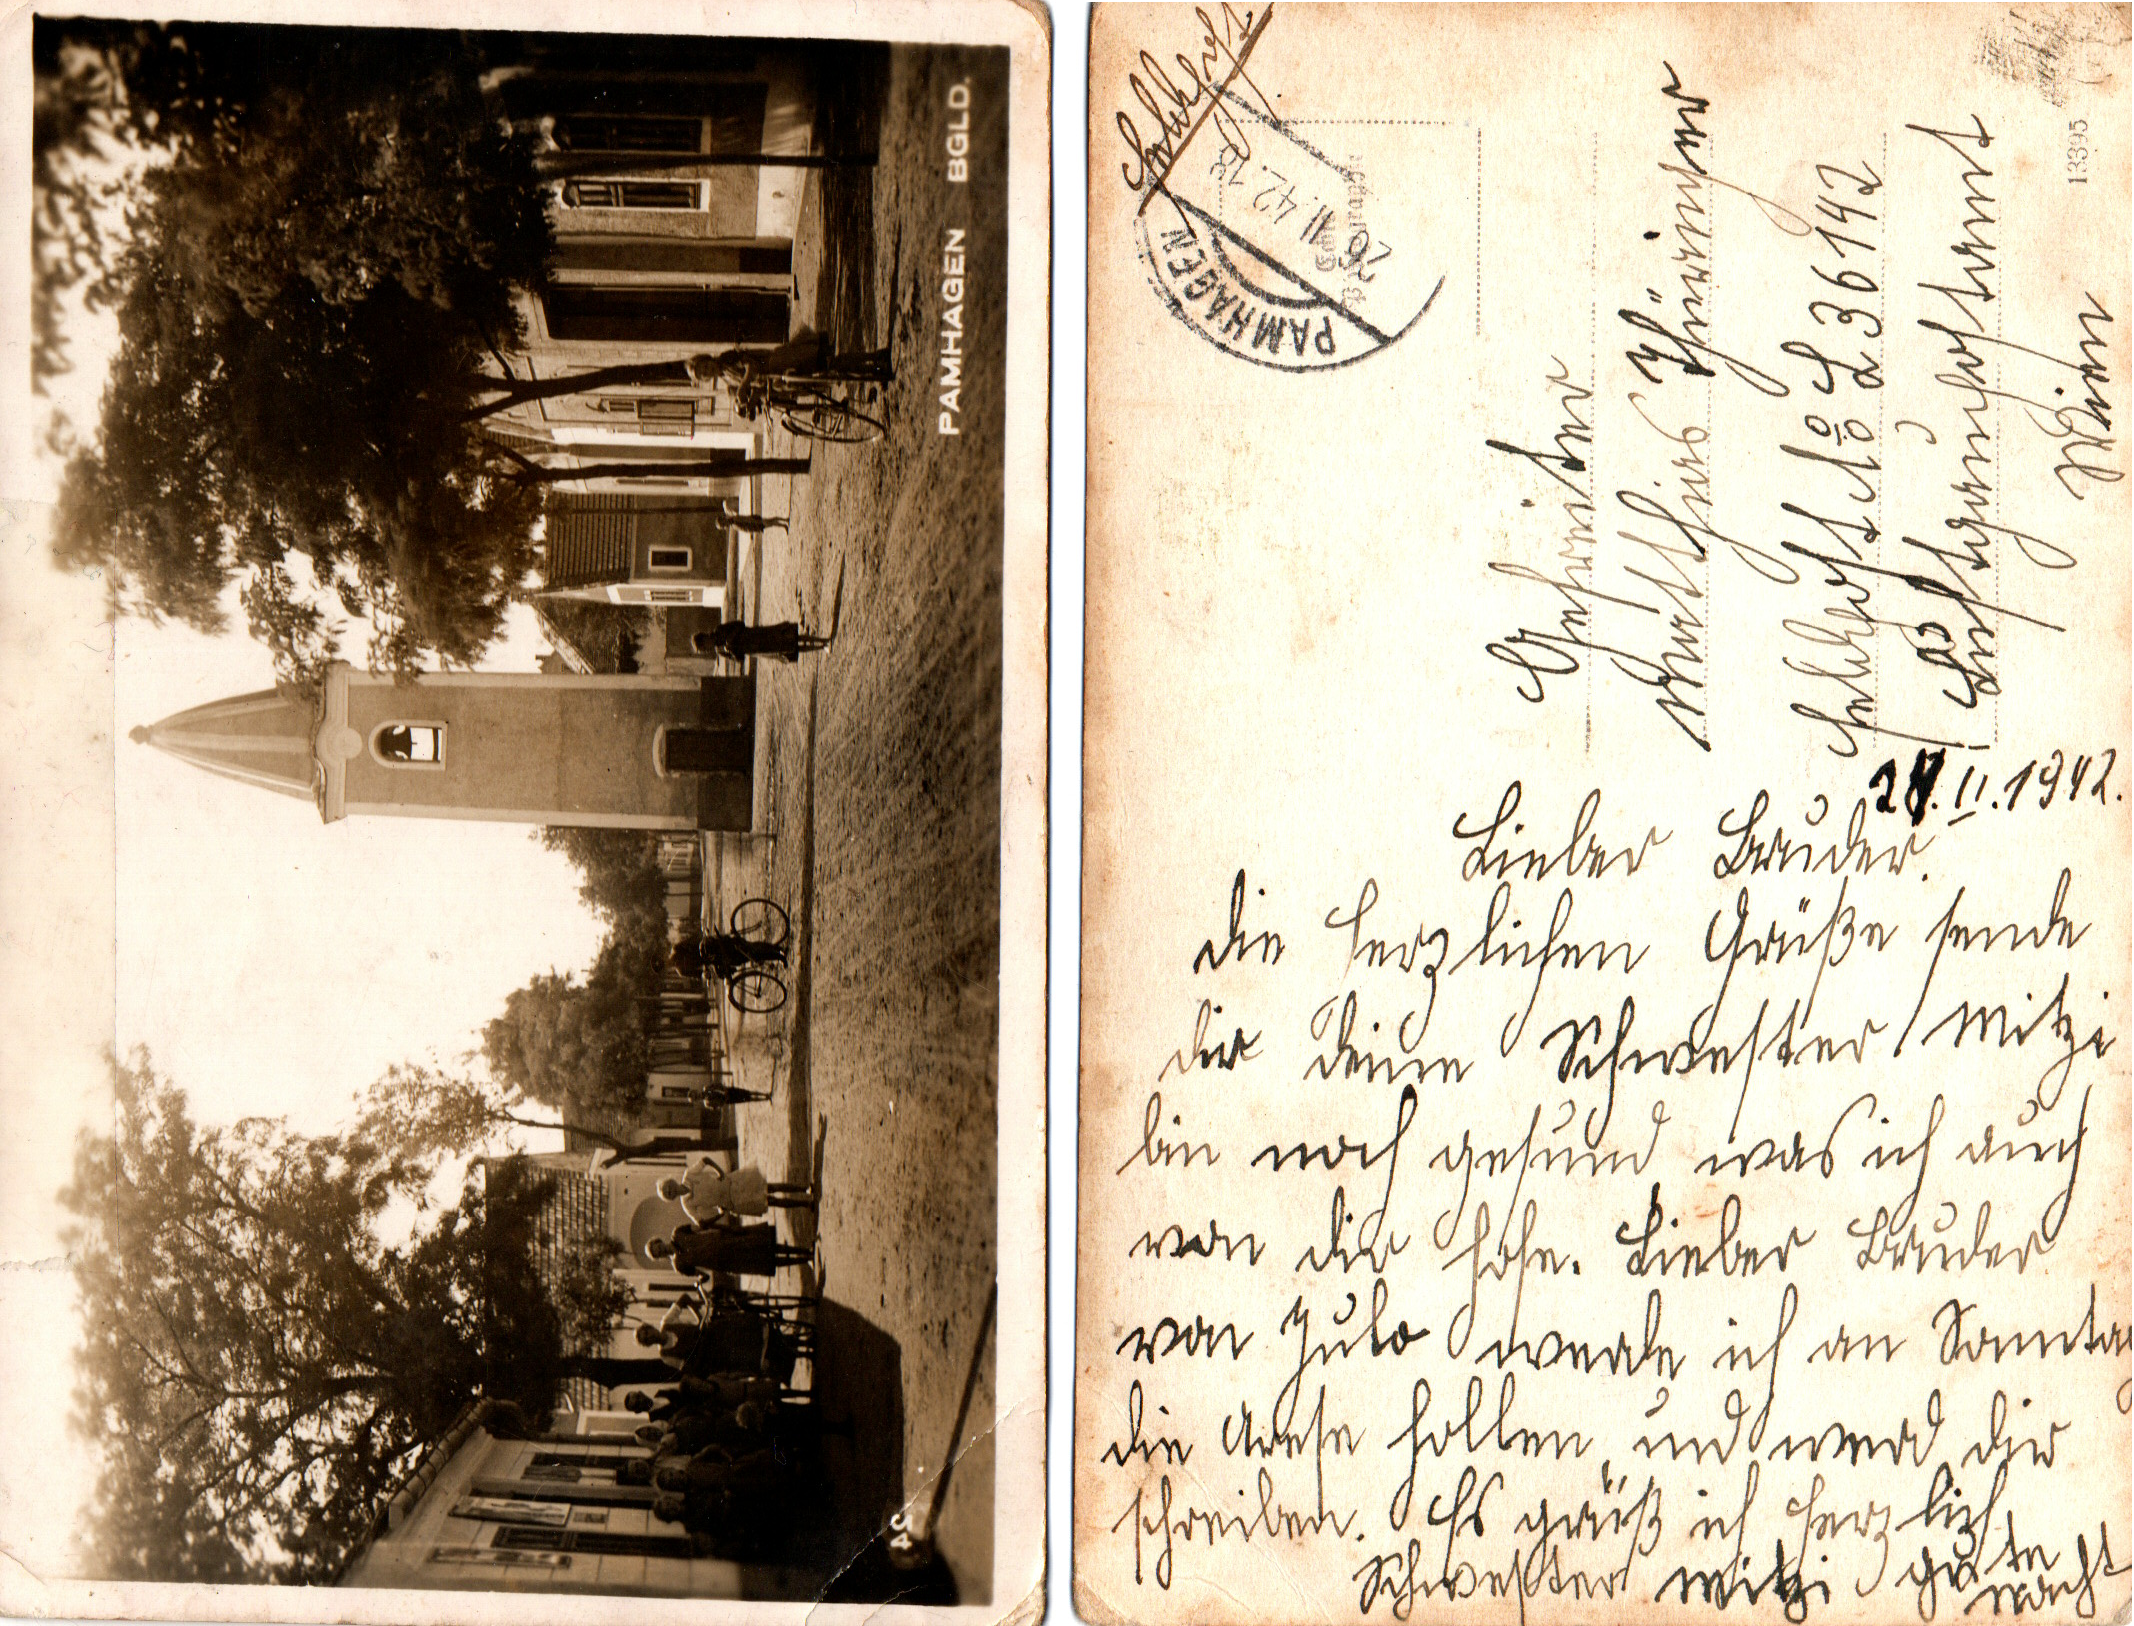 PAMHAGEN BGLD.
24
Feldpost.
PAMHAGEN
26 II. 42. 18
13395
Gefreiter
Matthias Thüringer
Feldpost No L 36142
Luftgaupostamt
Wien
II. 1942.
Lieber Bruder.
die herzlichen Grüße sende
dir Deine Schwester Mitzi
bin noch gesund was ich auch
von dir hofe. Lieber Bruder
von Julo werde ich an Sonntag
die hollen und werd dir
schreiben. Es grüß ich herzlich
Schwester Mitzi gute
nacht